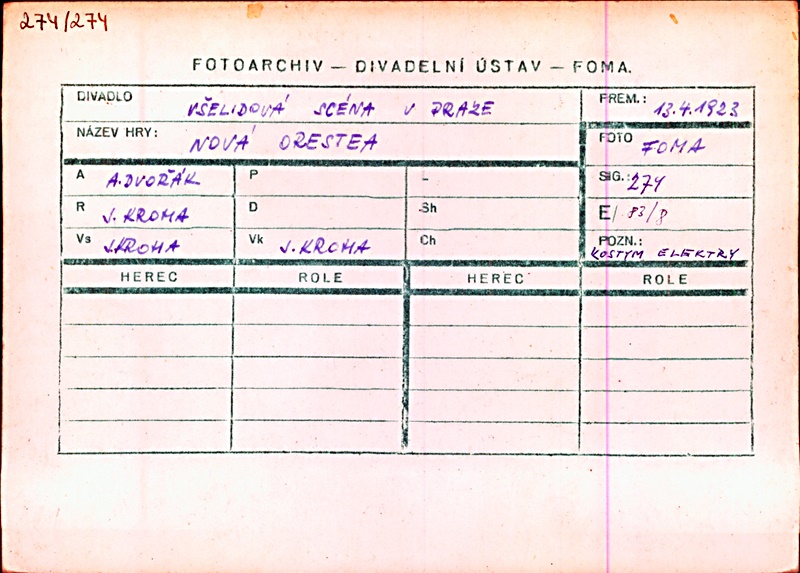 274/274
FOTOARCHIV — DIVADELNÍ ÚSTAV — FOMA.
DIVADLO VŠELIDOVÁ SCÉNA V PRAZE PREM.: 13.4.1923
NÁZEV HRY: NOVÁ ORESTEA FOTO FOMA
A A. DVOŘÁK P L SIG.: 274
R J. KROHA D Sh E/ 83/8
Vs J. KROHA Vk J. KROHA Ch POZN.: KOSTYM ELEKTRY
HEREC ROLE HEREC ROLE